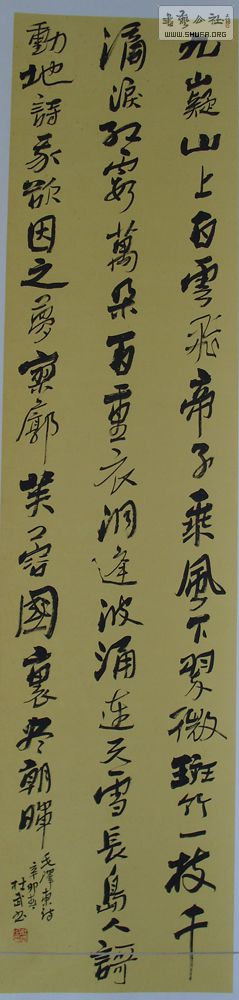 书艺公社
WWW.SHUFA.ORG
九嶷山上白雲飛帝子乘風下翠微斑竹一枝千
滴淚紅霞萬朵百重衣洞庭波涌連天雪長島人謌
動地詩我欲因之夢寥廓芙蓉國裏盡朝暉
毛澤東詩
辛卯
杜武書